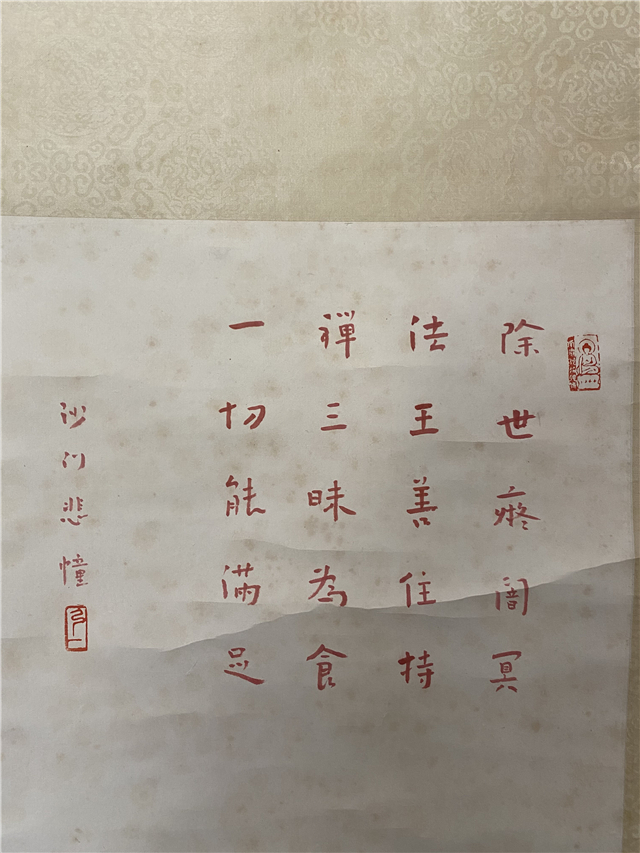 除世癡闇冥
法王善住持
禪三昧為食
一切能滿足
沙门悲幢